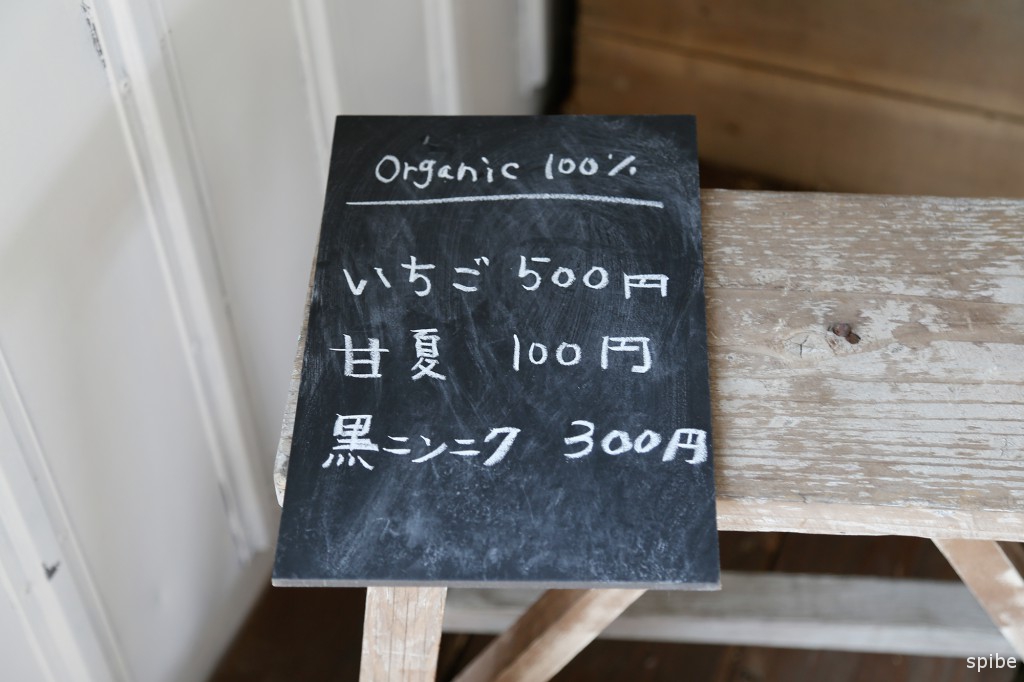 Organic 100%
いちご 500円
甘夏 100円
黒ニンニク 300円
spibe